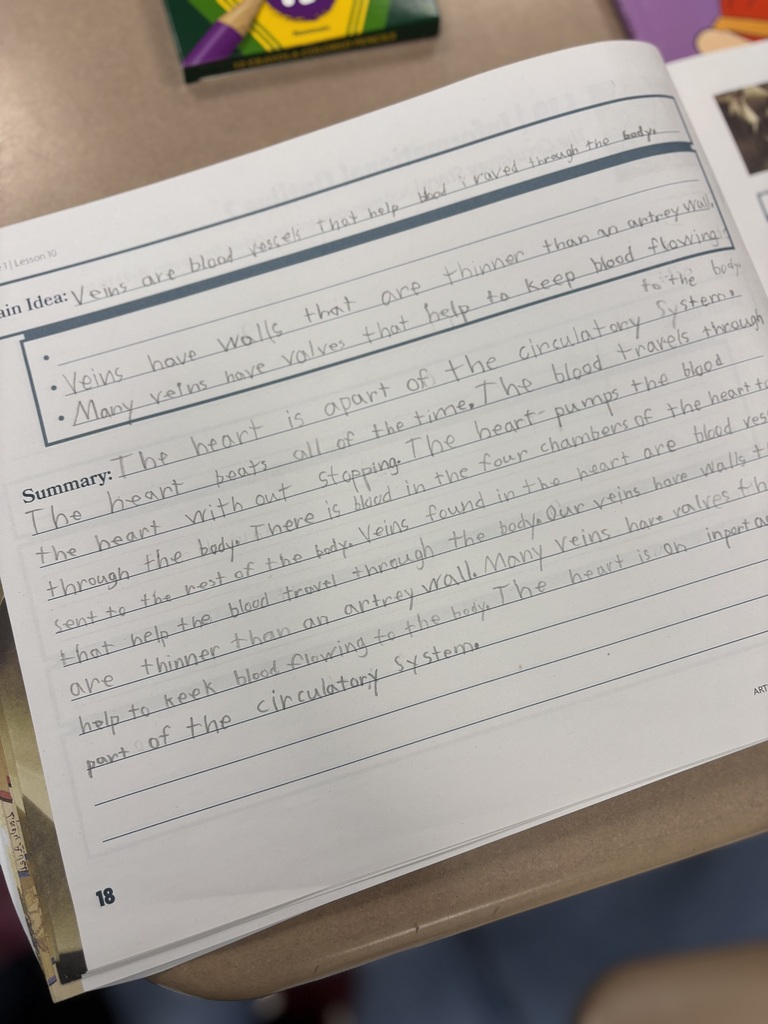 1 | Lesson 10
ain Idea: Veins are blood vessels that help blood traved through the body.
•
• Veins have walls that are thinner than an antrey wall.
• Many veins have valves that help to keep blood flowing
to the body.
Summary: The heart is apart of the circulatory System.
The heart beats all of the time. The blood travels through
the heart with out stopping. The heart pumps the blood
through the body. There is blood in the four chambers of the heart to
sent to the rest of the body. Veins found in the heart are blood ves
that help the blood travel through the body. Our veins have walls t
are thinner than an artrey wall. Many veins have valves th
help to keek blood flowing to the body. The heart is an inporta
part of the circulatory System.
ART
18